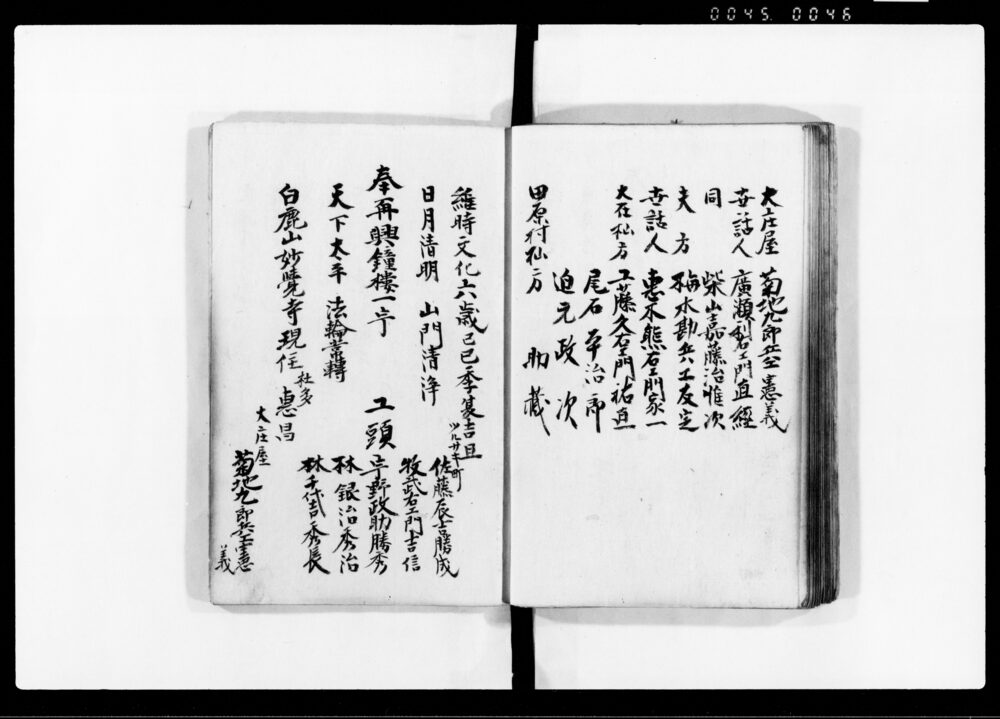 0045. 0046
大庄屋 菊地九郎兵衛憲義
世話人 廣瀬利右エ門直經
同 柴山嘉藤治惟次
夫方 梅木勘兵エ友定
世話人 恵木熊右エ門家一
大在杣方 工藤久右エ門祐直
尾石平治郎
迫元政次
田原村杣方 助蔵
維時文化六歳己巳季冬吉旦
日月清明 山門清浄
奉再興鐘樓一宇
天下太平 法輪常轉
白鹿山妙覺寺現住 杜多 恵昌
工頭
ツルサキ町
佐藤辰吉勝成
牧武右エ門吉信
宇野政助勝秀
林銀治秀治
林千代吉秀長
大庄屋
菊地九郎兵エ憲義